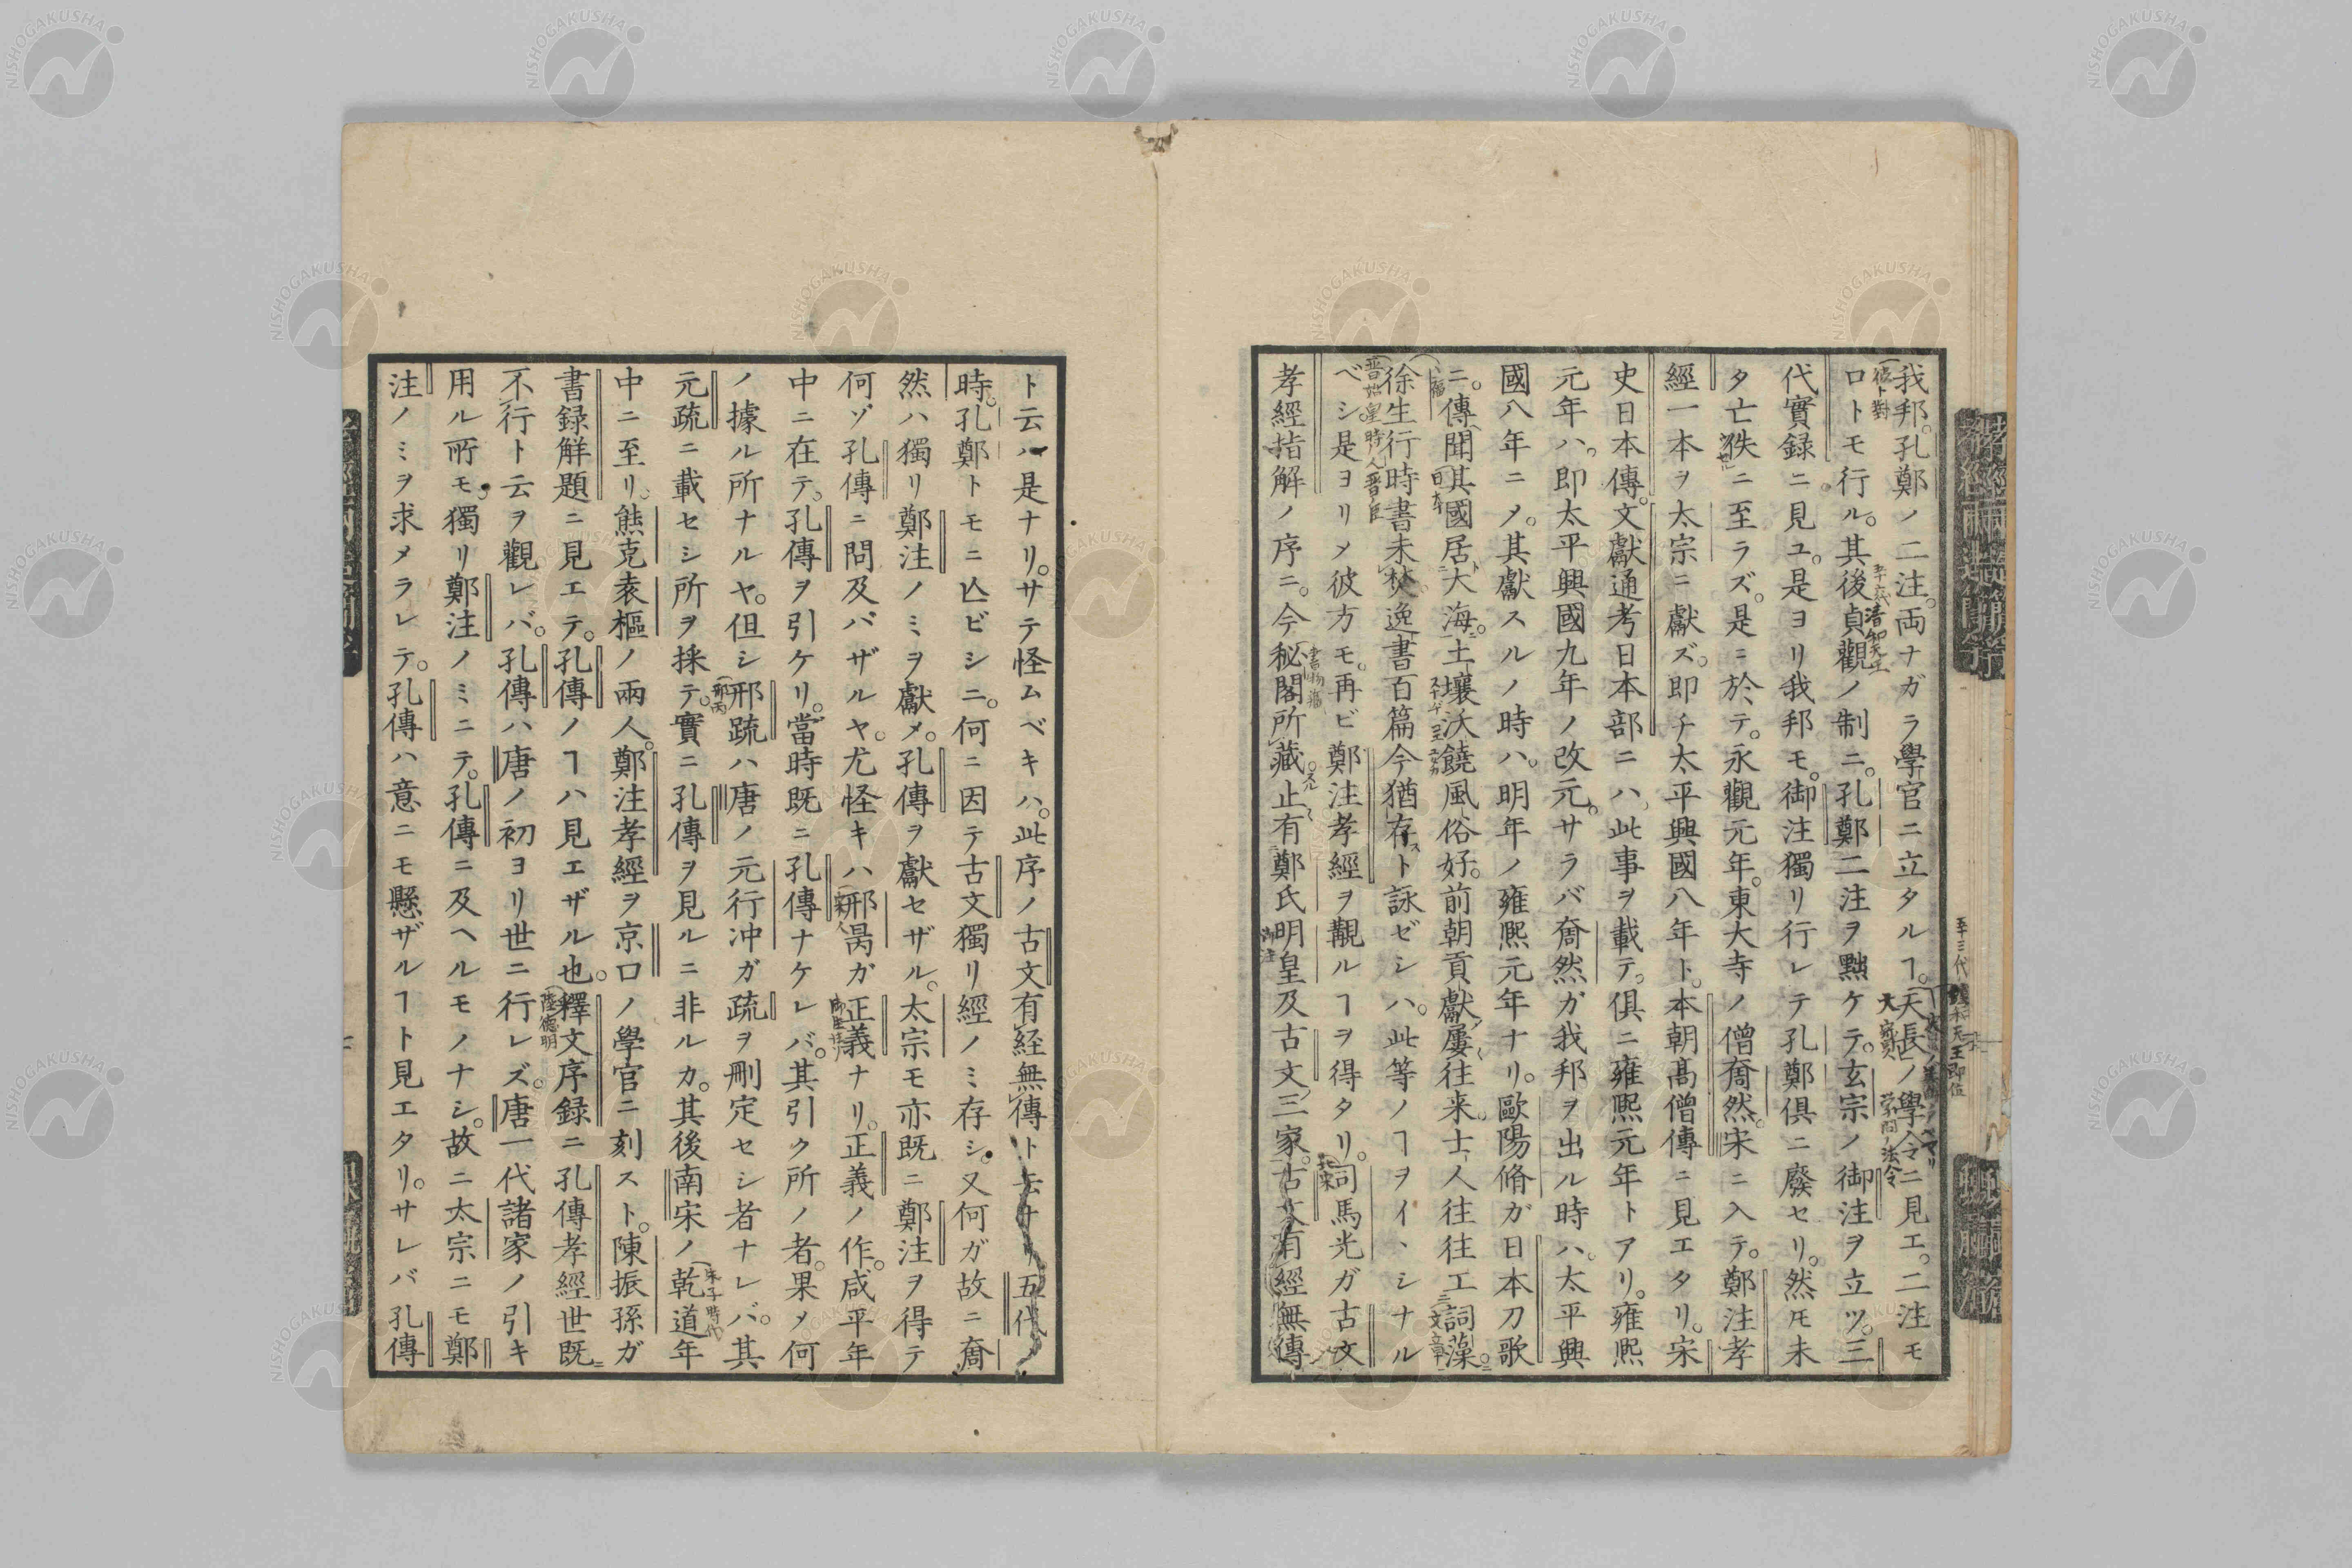 我邦孔鄭ノ二注。両ナガラ學官ニ立タルヿ。天長ノ學令ニ見エ。二注モ
ロトモ行ル。其後貞觀ノ制ニ。孔鄭二注ヲ黜ケテ。玄宗ノ御注ヲ立ツ。三
代實録ニ見ユ。是ヨリ我邦モ。御注獨リ行レテ孔鄭俱ニ廢セリ。然モ未
タ亡佚ニ至ラズ。是ニ於テ。永觀元年。東大寺ノ僧奝然。宋ニ入テ。鄭注孝
經一本ヲ太宗ニ獻ズ。即チ太平興國八年ト。本朝髙僧傳ニ見エタリ。宋
史日本傳。文獻通考日本部ニハ。此事ヲ載テ。俱ニ雍熙元年トアリ。雍熙
元年ハ。即太平興國九年ノ改元。サラバ奝然ガ我邦ヲ出ル時ハ。太平興
國八年ニメ。其獻スルノ時ハ。明年ノ雍熙元年ナリ。歐陽脩ガ日本刀歌
ニ。傳聞其國居大海。土壤沃饒風俗好。前朝貢獻屢往来。士人往往工詞藻。
徐生行時書未焚。逸書百篇今猶存ト詠ゼシハ。此等ノヿヲイヽシナル
ベシ是ヨリメ彼方モ。再ビ鄭注孝經ヲ觀ルヿヲ得タリ。司馬光ガ古文
孝經指解ノ序ニ。今秘閣所藏止有鄭氏明皇及古文三家。古文有經無傳
ト云ハ是ナリ。サテ怪ムベキハ。此序ノ古文有経無傳ト云ナリ五代
時。孔鄭トモニ亾ビシニ。何ニ因テ古文獨リ經ノミ存シ。又何ガ故ニ奝
然ハ獨リ鄭注ノミヲ獻メ。孔傳ヲ獻セザル。太宗モ亦既ニ鄭注ヲ得テ
何ゾ孔傳ニ問及バザルヤ。尤怪キハ邢昺ガ正義ナリ。正義ノ作。咸平年
中ニ在テ。孔傳ヲ引ケリ。當時既ニ孔傳ナケレバ。其引ク所ノ者。果メ何
ノ據ル所ナルヤ。但シ邢疏ハ唐ノ元行冲ガ疏ヲ刪定セシ者ナレバ。其
元疏ニ載セシ所ヲ採テ。實ニ孔傳ヲ見ルニ非ルカ。其後南宋ノ乾道年
中ニ至リ。熊克袁樞ノ兩人。鄭注孝經ヲ京口ノ學官ニ刻スト。陳振孫ガ
書録解題ニ見エテ。孔傳ノヿハ見エザル也。釋文序録ニ孔傳孝經世既
不行ト云ヲ觀レバ。孔傳ハ唐ノ初ヨリ世ニ行レズ。唐一代諸家ノ引キ
用ル所モ。獨リ鄭注ノミニテ。孔傳ニ及ヘルモノナシ。故ニ太宗ニモ鄭
注ノミヲ求メラレテ。孔傳ハ意ニモ懸ザルヿト見エタリ。サレバ孔傳